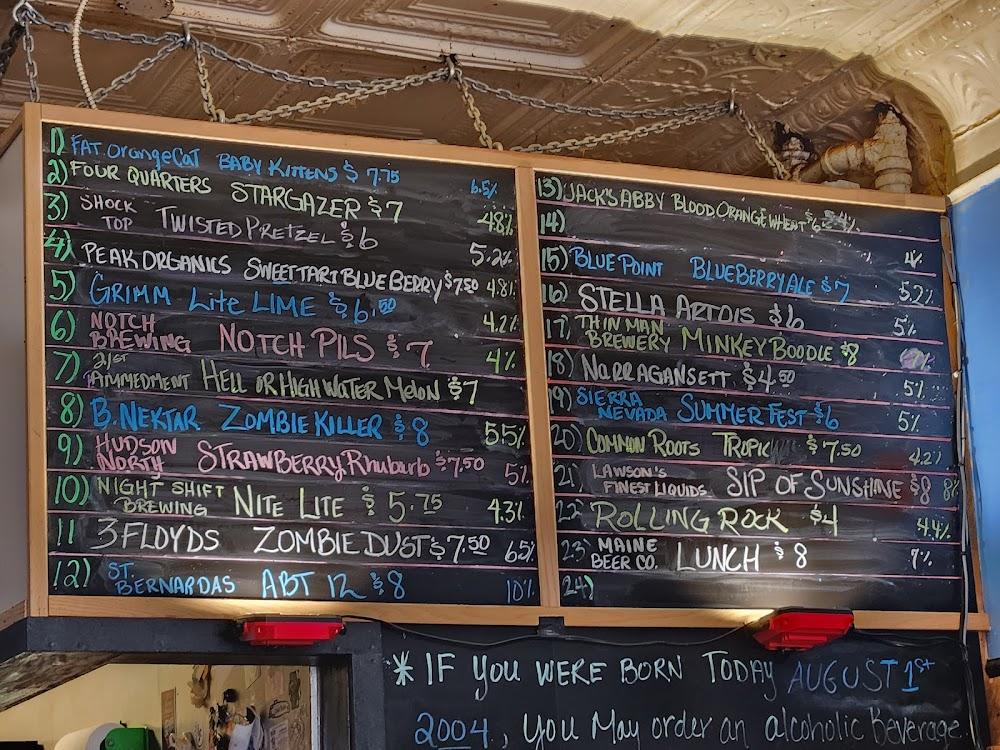 1) FAT OrangeCaT BABY KITTENS $7.75 6.5%
2) FOUR QUARTERS STARGAZER $7 4.8%
3) SHOCK TOP TWISTED PRETZEL $6 5.2%
4) PEAK ORGANICS SWEETTART BLUEBERRY $7.50 4.8%
5) GRIMM Lite LIME $6.50 4.2%
6) NOTCH BREWING NOTCH PILS $7 4%
7) 21st AMMEDMENT HELL OR HIGH WATER MELON $7
8) B.NEKTAR ZOMBIE KILLER $8 5.5%
9) HUDSON NORTH STRAWBERRY Rhubarb $7.50 5%
10) NIGHT SHIFT BREWING NITE LITE $5.75 4.3%
11 3 FLOYDS ZOMBIE DUST $7.50 6.5%
12) ST BERNARDAS ABT 12 $8 10%
13) JACK'S ABBY BLOOD ORANGE WHEAT $6
14)
15) BLUE POINT BLUEBERRY ALE $7 5.2%
16) STELLA ARTOIS $6 5%
17) THIN MAN BREWERY MINKEY BOODLE $8
18) NARRAGANSETT $4.50 5%
19) SIERRA NEVADA SUMMER FEST $6 5%
20) COMMON ROOTS $7.50 4.2%
21) LAWSON'S FINEST LIQUIDS SIP OF SUNSHINE $8 8%
22 ROLLING ROCK $4 4.4%
23) MAINE BEER CO. LUNCH $8 7%
24)
* IF YOU WERE BORN TODAY AUGUST 1st
2004, YOU MAY order an alcoholic Beverage.